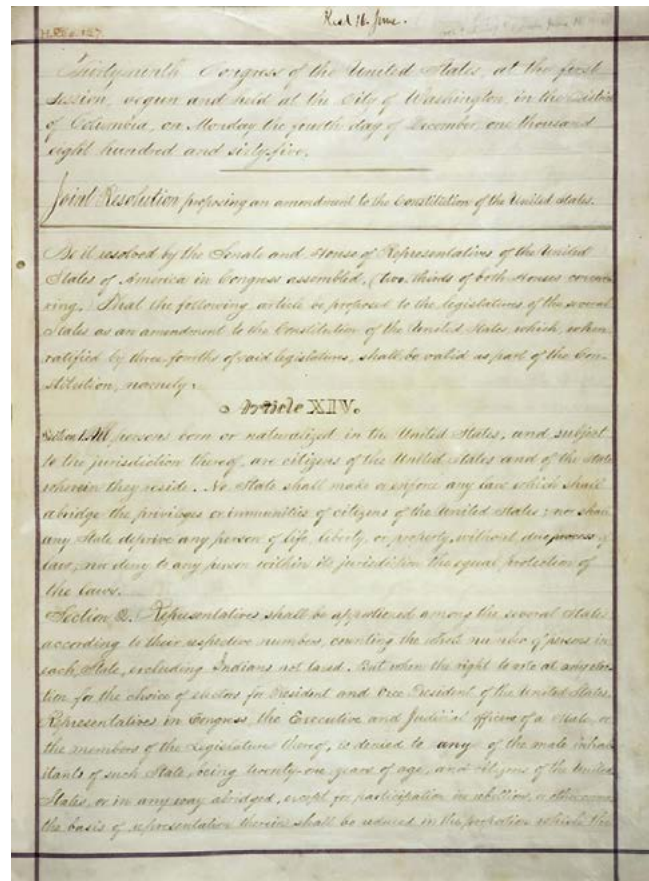 Recd 16. June.
H.Res. 127.
Thirty-ninth Congress of the United States, at the first
Session, begun and held at the City of Washington, in the District
of Columbia, on Monday the fourth day of December, one thousand
eight hundred and sixty-five.
Joint Resolution proposing an amendment to the Constitution of the United States.
Be it resolved by the Senate and House of Representatives of the United
States of America in Congress assembled, (two-thirds of both Houses concur-
ring,) That the following article be proposed to the legislatures of the several
States as an amendment to the Constitution of the United States, which, when
ratified by three-fourths of said legislatures, shall be valid as part of the Con-
stitution, namely:
Article XIV.
Section 1. All persons born or naturalized in the United States, and subject
to the jurisdiction thereof, are citizens of the United States and of the State
wherein they reside. No State shall make or enforce any law which shall
abridge the privileges or immunities of citizens of the United States; nor shall
any State deprive any person of life, liberty, or property, without due process of
law, nor deny to any person within its jurisdiction the equal protection of
the laws.
Section 2. Representatives shall be apportioned among the several States
according to their respective numbers, counting the whole number of persons in
each State, excluding Indians not taxed. But when the right to vote at any elec-
tion for the choice of electors for President and Vice President of the United States,
Representatives in Congress, the Executive and Judicial officers of a State, or
the members of the Legislature thereof, is denied to any of the male inhab-
itants of such State, being twenty-one years of age, and citizens of the United
States, or in any way abridged, except for participation in rebellion, or other crime,
the basis of representation therein shall be reduced in the proportion which the